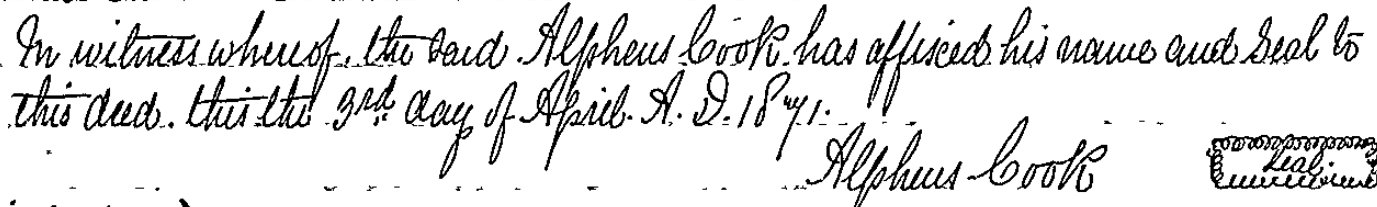 In witness whereof. the said Alpheus Cook has affixed his name and Seal to
this deed. this the 3rd day of April. A. D. 1871.
Alpheus Cook Seal